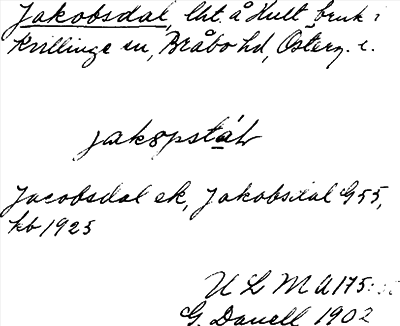 Jakobsdal, lht. å Hult, bruk i
Krillinge sn, Bråbo hd, Österg. l.
jakopstál
Jacobsdal ek, Jakobsdal G55,
hb 1925
U L M A 175:
G. Danell 1902